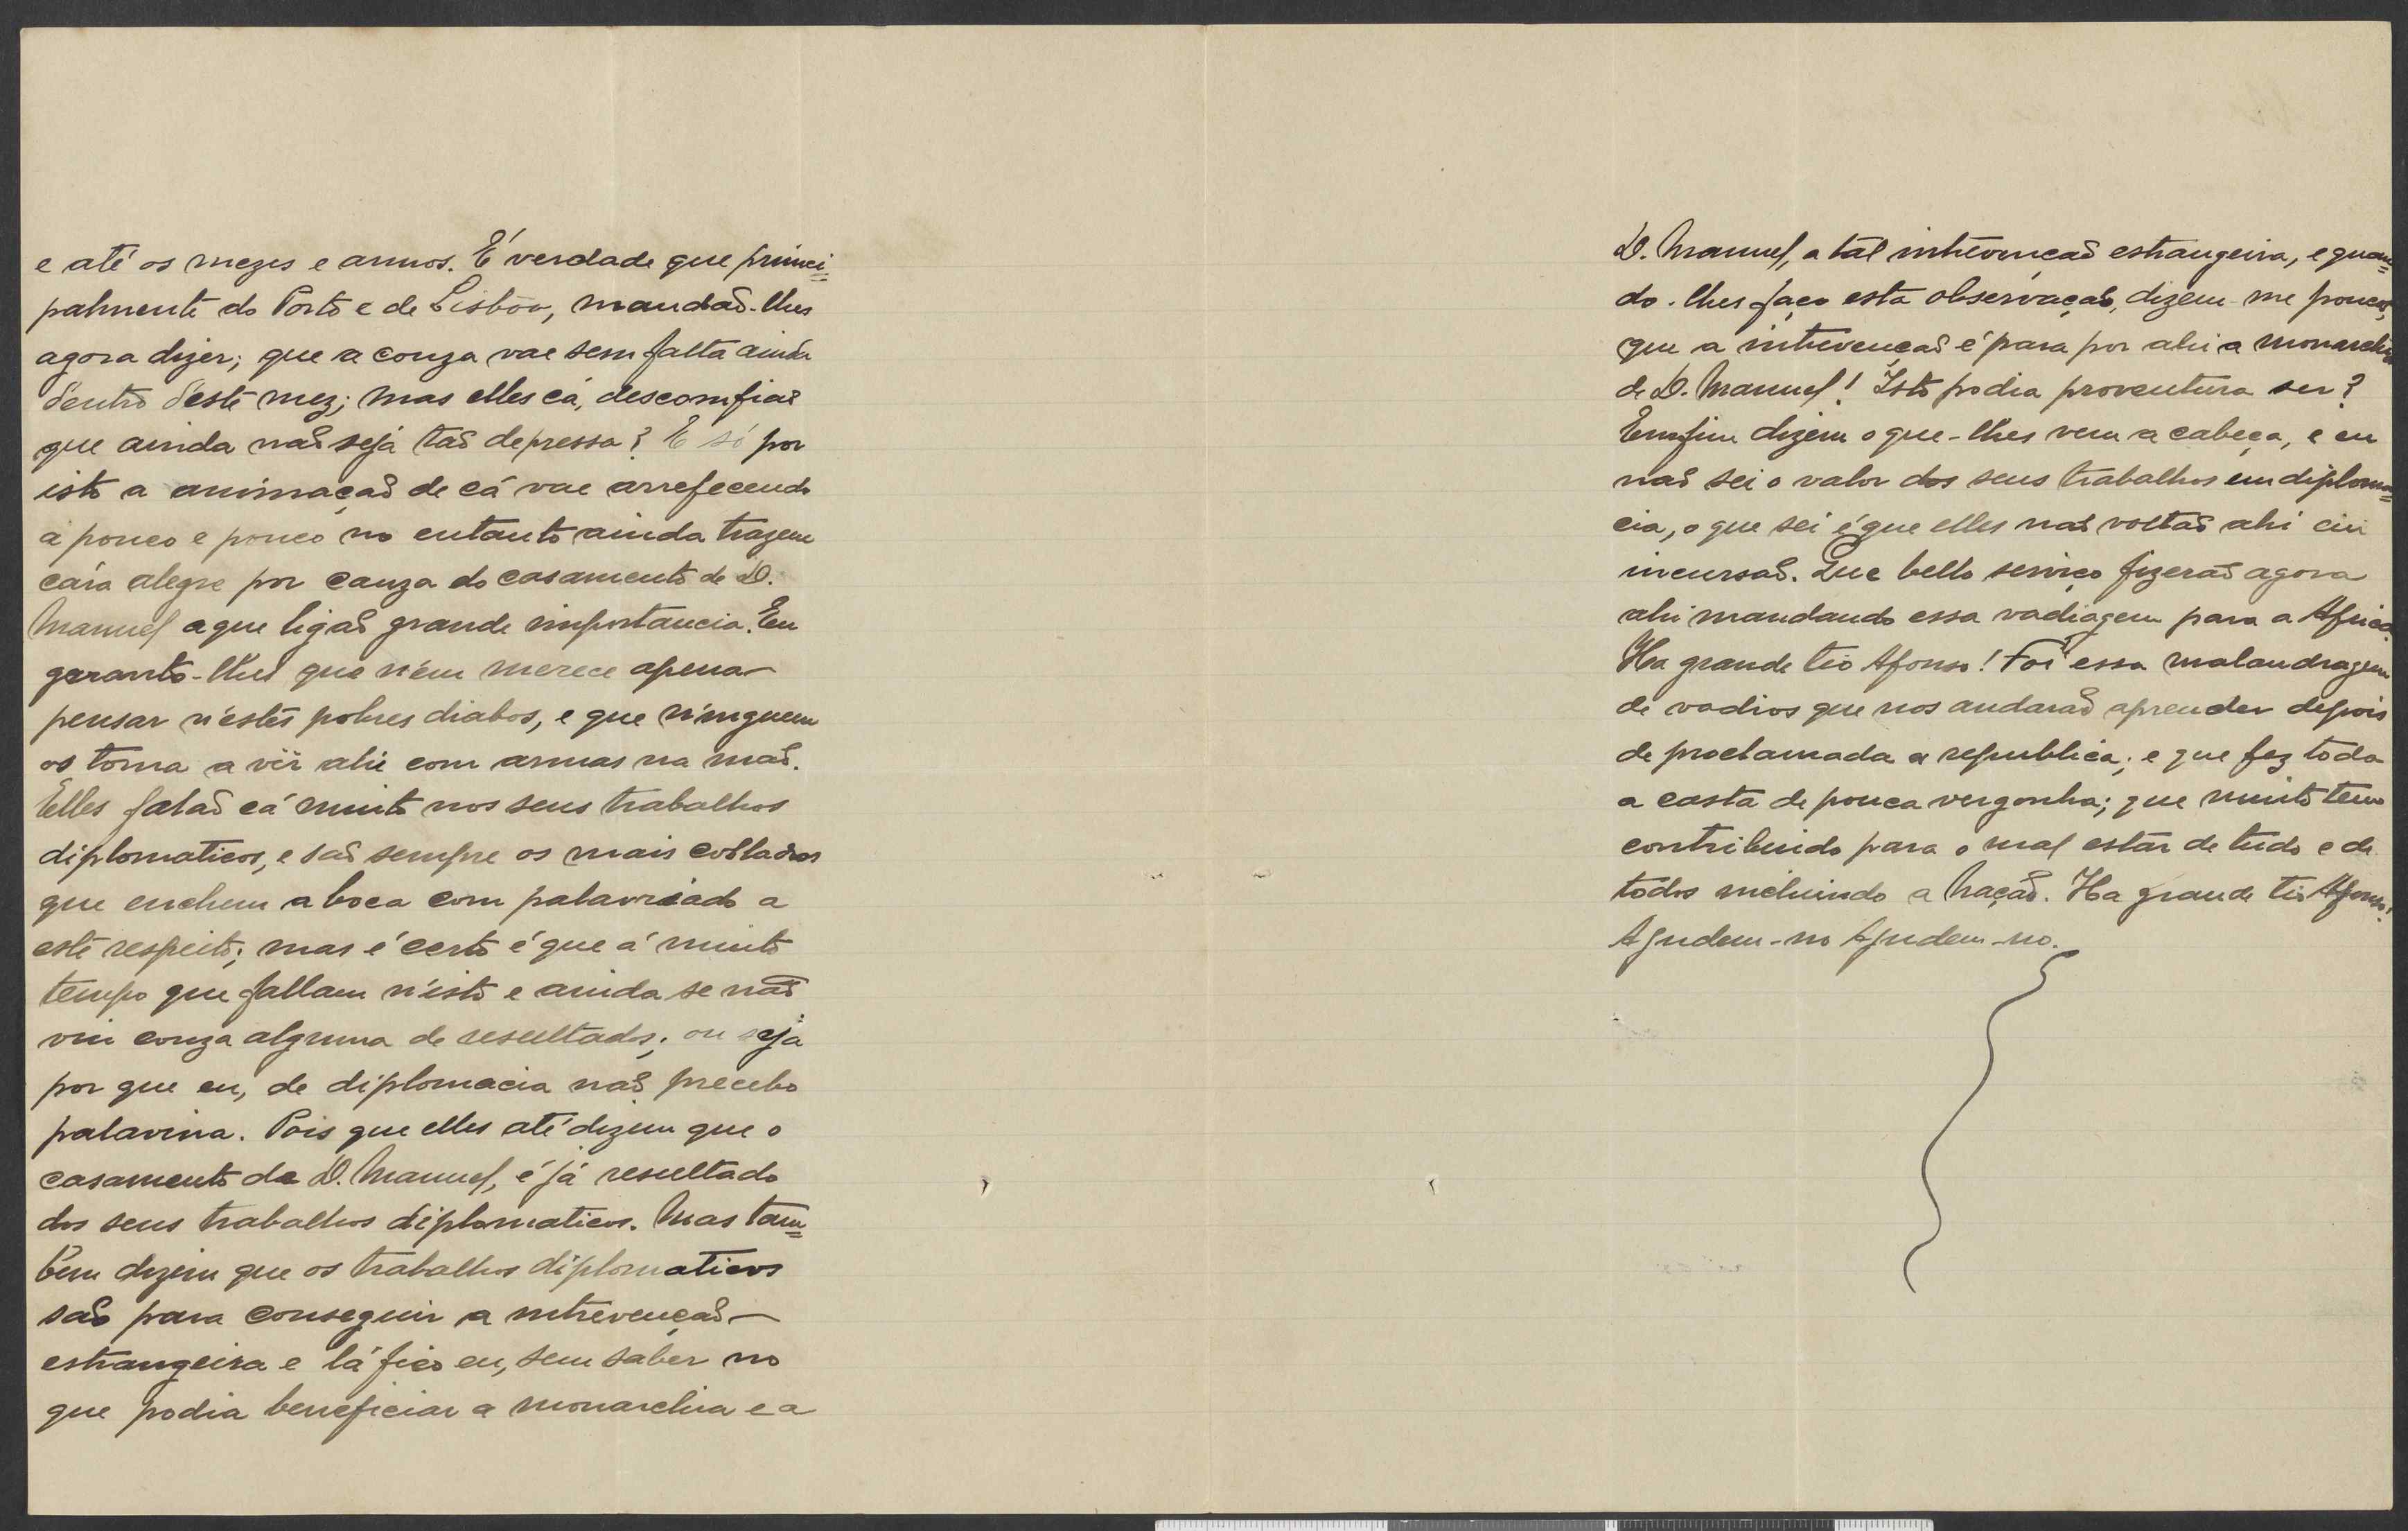 e até os mezes e annos. É verdade que princi=
palmente do Porto e de Lisbôa, mandaõ-lhes
agora dizer; que a couza vae sem falta ainda
dentro d'este mez; mas elles cá, descomfiaõ
que ainda naõ seja taõ depressa? E só por
isto a animaçaõ de cá vae arrefecendo
a pouco e pouco no entanto ainda trazem
cára alegre por cauza do casamento de D.
Manuel a que ligaõ grande importancia. Eu
garanto-lhes que nem merece apena
pensar n'estes pobres diabos, e que ninguem
os torna a vêr ahi com armas na maõ.
Elles falaõ cá muito nos seus trabalhos
diplomaticos, e saõ sempre os mais
que enchem a boca com palavriado a
este respeito; mas é certo é que á muito
tempo que fallam n'isto e ainda se naõ
viu couza alguma de resultados; ou seja
por que eu, de diplomacia naõ precebo
palavina. Pois que elles até dizem que o
casamento de D. Manuel, é já resultado
dos seus trabalhos diplomaticos. Mas tam=
bem dizem que os trabalhos diplomaticos
saõ para conseguir a intrevençaõ
estrangeira e lá fico eu, sem saber no
que podia beneficiar a monarchia e a
D. Manuel, a tal intrevençaõ estrangeira, e quan=
do-lhes faço esta observaçaõ, dizem-me poucos,
que a intrevençaõ é para por ahi a monarchia
de D. Manuel! Isto podia proventura ser?
Emfim dizem o que-lhes vem a cabeça, e eu
naõ sei o valor dos seus trabalhos em diploma=
cia, o que sei é que elles naõ voltaõ ahi em
incursaõ. Que bello serviço fizeraõ agora
ahi mandando essa vadiagem para a Africa.
Ha grande tio Afonso! Foi essa malandragem
de vadios que nos andaraõ aprender depois
de proclamada a republica; e que fez toda
a casta de pouca vergonha; que muito tem
contribuido para o mal estár de tudo e de
todos incluindo a Naçaõ. Ha grande tio Afonso!
Ajudem-no Ajudem-no.